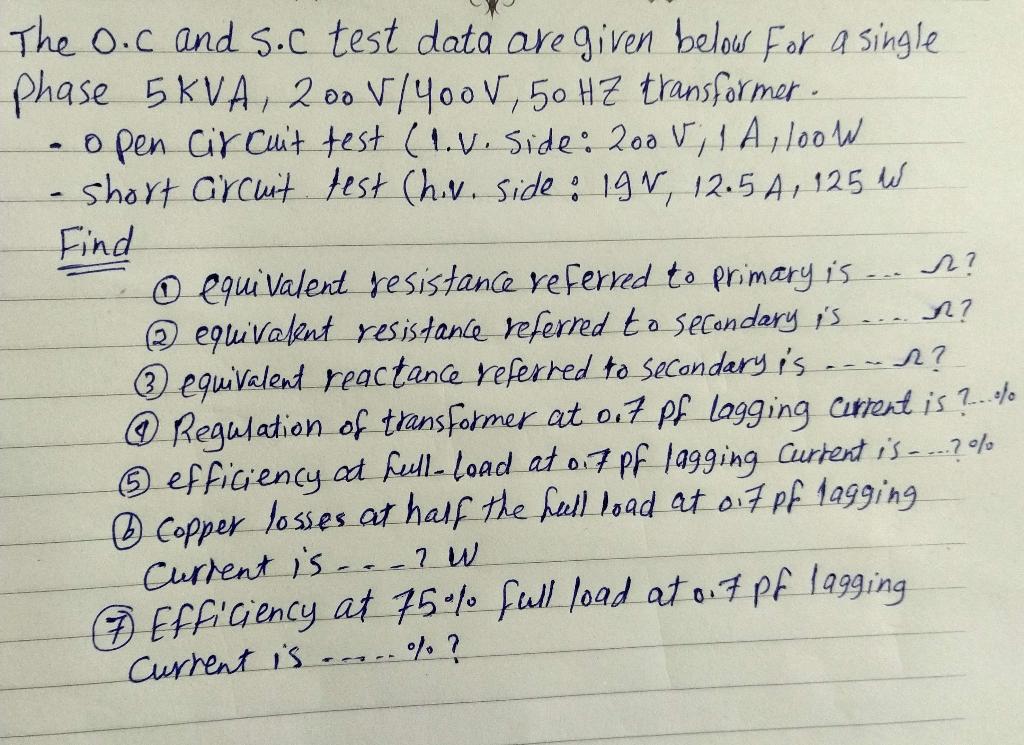 The O.C and S.C test data are given below For a single
phase 5 KVA, 200 V/400 V, 50 HZ transformer.
- open circuit test (l.v. side: 200 V, 1 A, 100 W
- short circuit test (h.v. side: 19 V, 12.5 A, 125 W
Find
① equivalent resistance referred to primary is --- Ω?
② equivalent resistance referred to secondary is .... Ω?
③ equivalent reactance referred to secondary is ---- Ω?
④ Regulation of transformer at 0.7 pf lagging current is ?...%
⑤ efficiency at full-load at 0.7 pf lagging current is -...? %
⑥ Copper losses at half the full load at 0.7 pf lagging
current is ---? W
⑦ Efficiency at 75% full load at 0.7 pf lagging
current is ----- %?